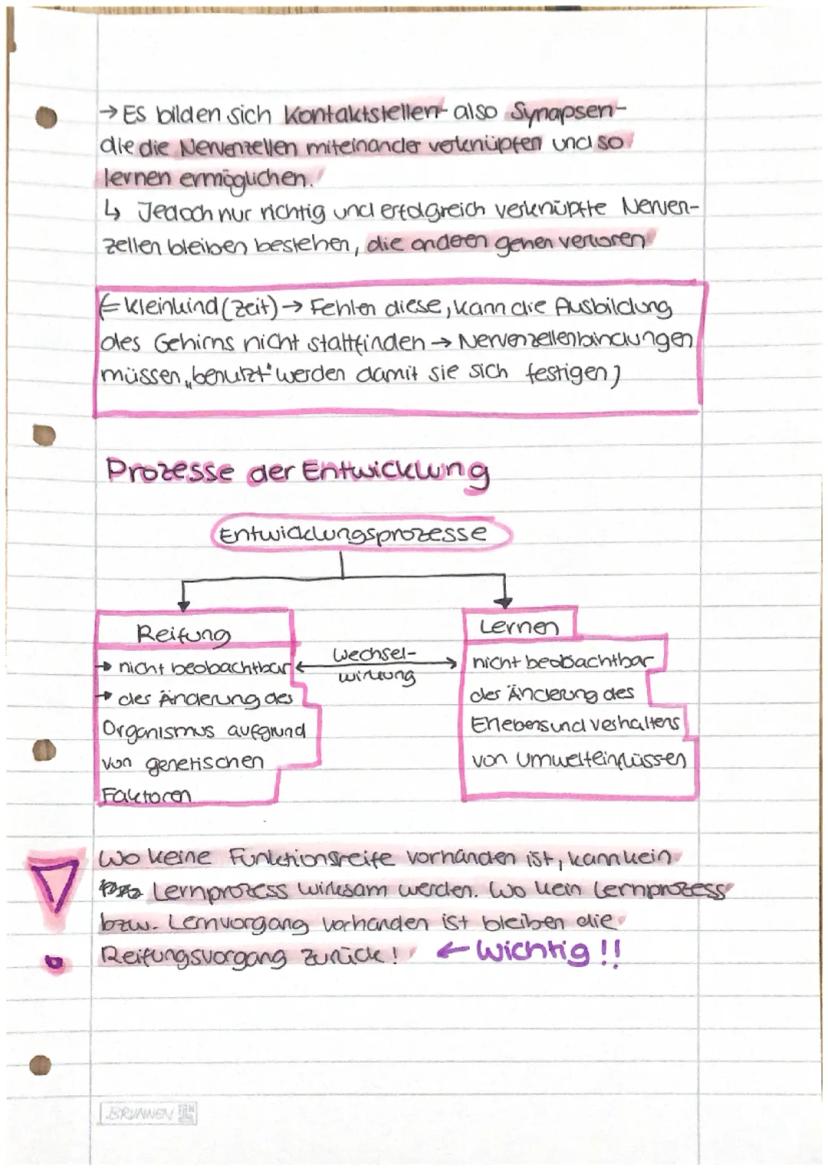 → Es bilden sich Kontaktstellen- also Synapsen-
die die Nervenzellen miteinander verknüpfen und so
lernen ermöglichen.
↳ Jedoch nur richtig und erfolgreich verknüpfte Nerven-
zellen bleiben bestehen, die anderen gehen verloren
(= Kleinkind (Zeit) → Fehlen diese, kann die Ausbildung
des Gehirns nicht stattfinden → Nervenzellenbindungen
müssen „benutzt" werden damit sie sich festigen)
Prozesse der Entwicklung
Entwicklungsprozesse
Reifung
→ nicht beobachtbar
→ des Änderung des
Organismus aufgrund
von genetischen
Faktoren
Wechsel-
wirkung
Lernen
nicht beobachtbar
des Änderung des
Erlebens und verhaltens
von Umwelteinflüssen
Wo keine Funktionsreife vorhanden ist, kann kein
Lernprozess wirksam werden. Wo kein Lernprozess
bzw. Lernvorgang vorhanden ist bleiben die
Reifungsvorgang zurück! ← Wichtig!!
BRUNNEN